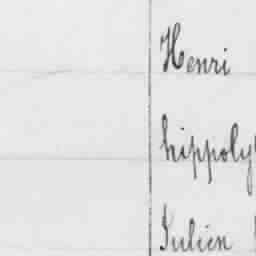 Henri
hippoly
Julien